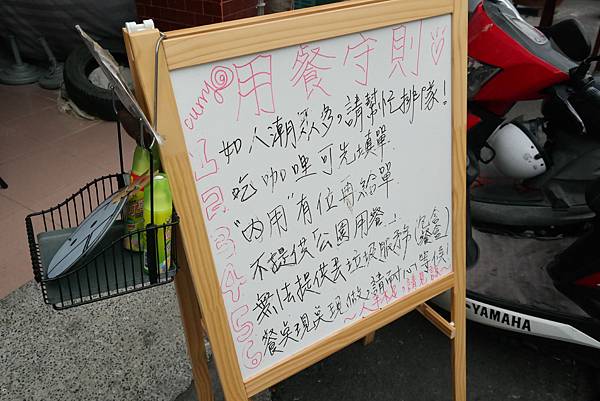 用餐守則♡
1. 如人潮眾多,請幫忙排隊!
2. 吃咖哩可先填單.
3. "內用"有位再給單.
4. 不提供公園用餐.
5. 無法提供丟垃圾服務(包含餐盒)
6. 餐點現點現做,請耐心等候!
YAMAHA